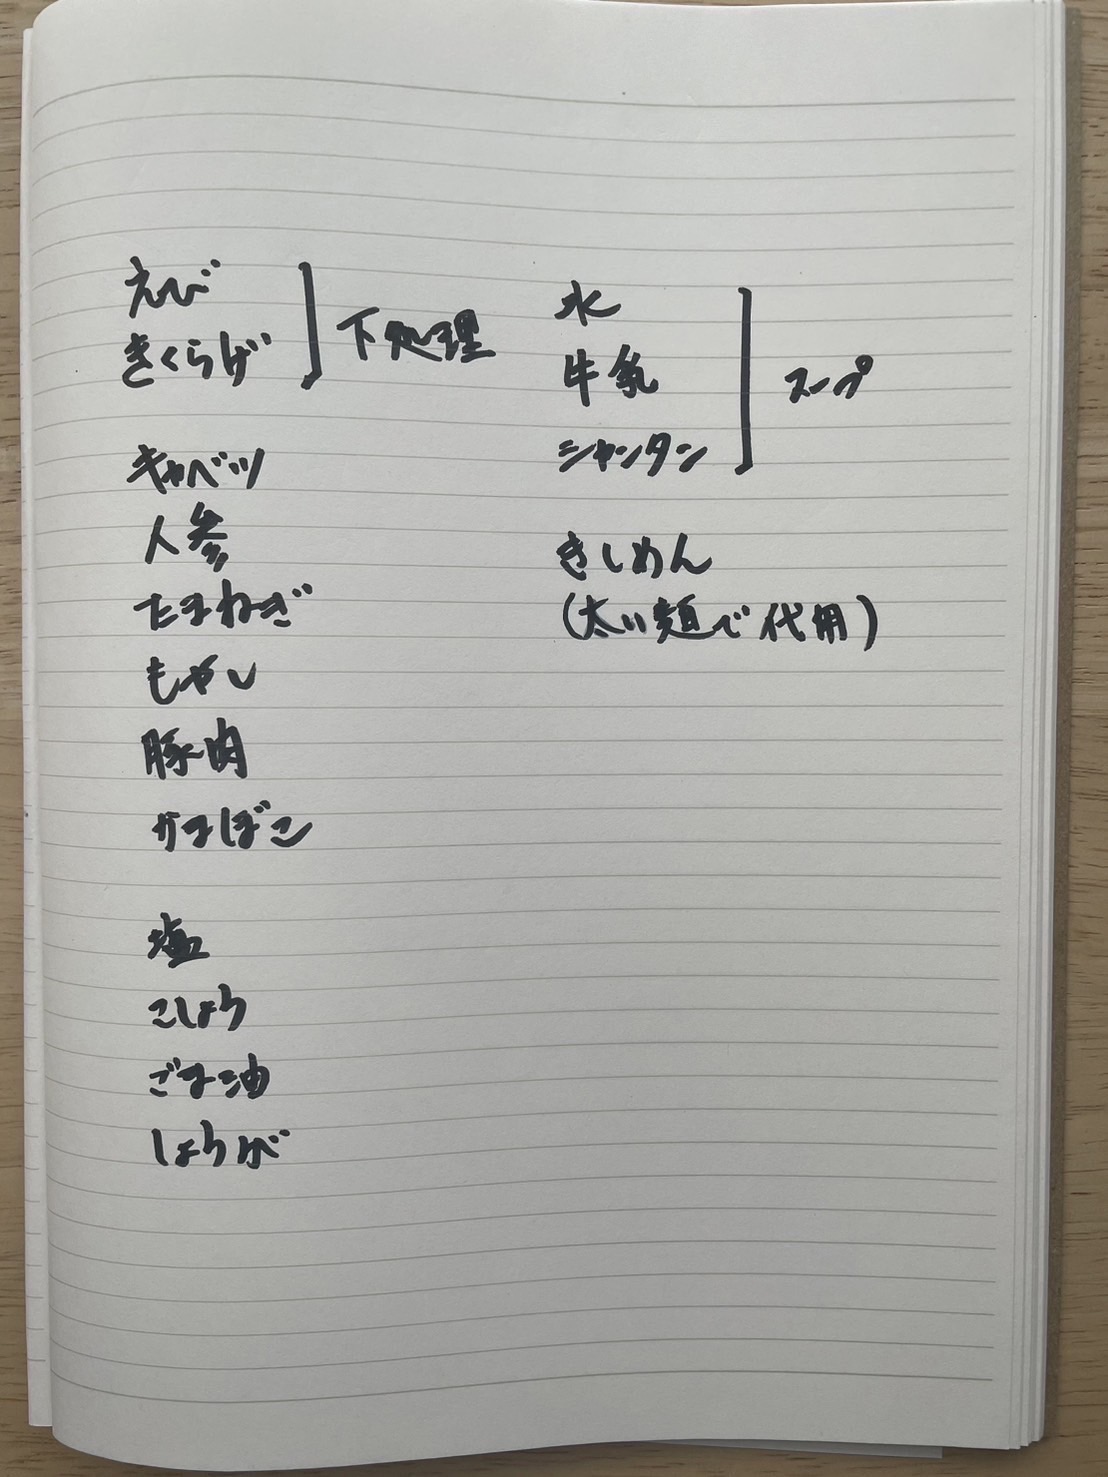 えび
きくらげ
下処理
キャベツ
人参
たまねぎ
もやし
豚肉
かまぼこ
塩
こしょう
ごま油
しょうが
水
牛乳
シャンタン
スープ
きしめん
(太い麺で代用)